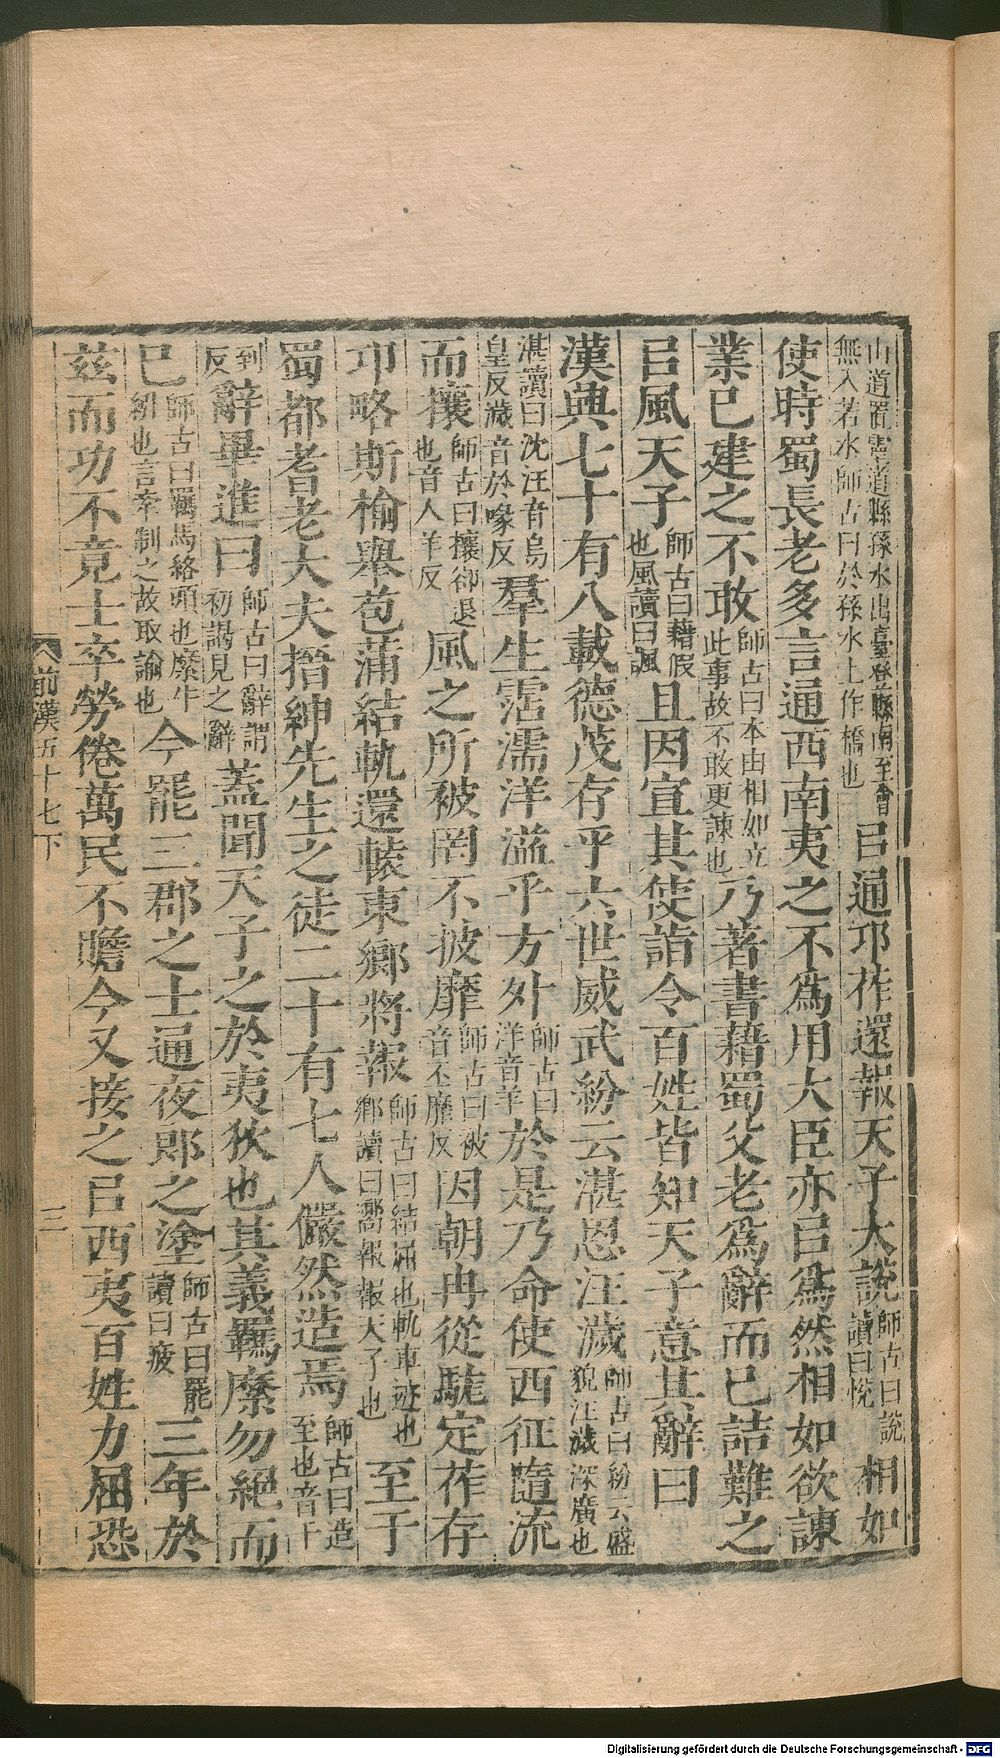 山道置靈道縣孫水出臺登縣南至會無入若水師古曰於孫水上作橋也㠯通邛莋還報天子大說師古曰說讀曰悅相如
使時蜀長老多言通西南夷之不爲用大臣亦㠯爲然相如欲諫
業已建之不敢師古曰本由相如立此事故不敢更諫也乃著書藉蜀父老爲辭而已詰難之
㠯風天子師古曰藉假也風讀曰諷且因宣其使詣令百姓皆知天子意其辭曰
漢興七十有八載德茂存乎六世威武紛云湛恩汪濊師古曰紛云盛貌汪濊深廣也
湛讀曰沈汪音烏皇反濊音於喙反羣生霑濡洋溢乎方外師古曰洋音羊於是乃命使西征隨流
而攘師古曰攘卻退也音人羊反風之所被罔不披靡師古曰被音丕靡反因朝冉從駹定莋存
邛略斯榆舉苞蒲結軌還轅東鄉將報師古曰結屈也軌車迹也鄉讀曰嚮報報天子也至于
蜀都耆老大夫搢紳先生之徒二十有七人儼然造焉師古曰造至也音千
到反辭畢進曰師古曰辭謂初謁見之辭蓋聞天子之於夷狄也其義羈縻勿絕而
已師古曰羈馬絡頭也縻牛紖也言牽制之故取諭也今罷三郡之士通夜郎之塗師古曰罷讀曰疲三年於
茲而功不竟士卒勞倦萬民不贍今又接之㠯西夷百姓力屈恐
前漢五十七下
三
Digitalisierung gefördert durch die Deutsche Forschungsgemeinschaft - DFG